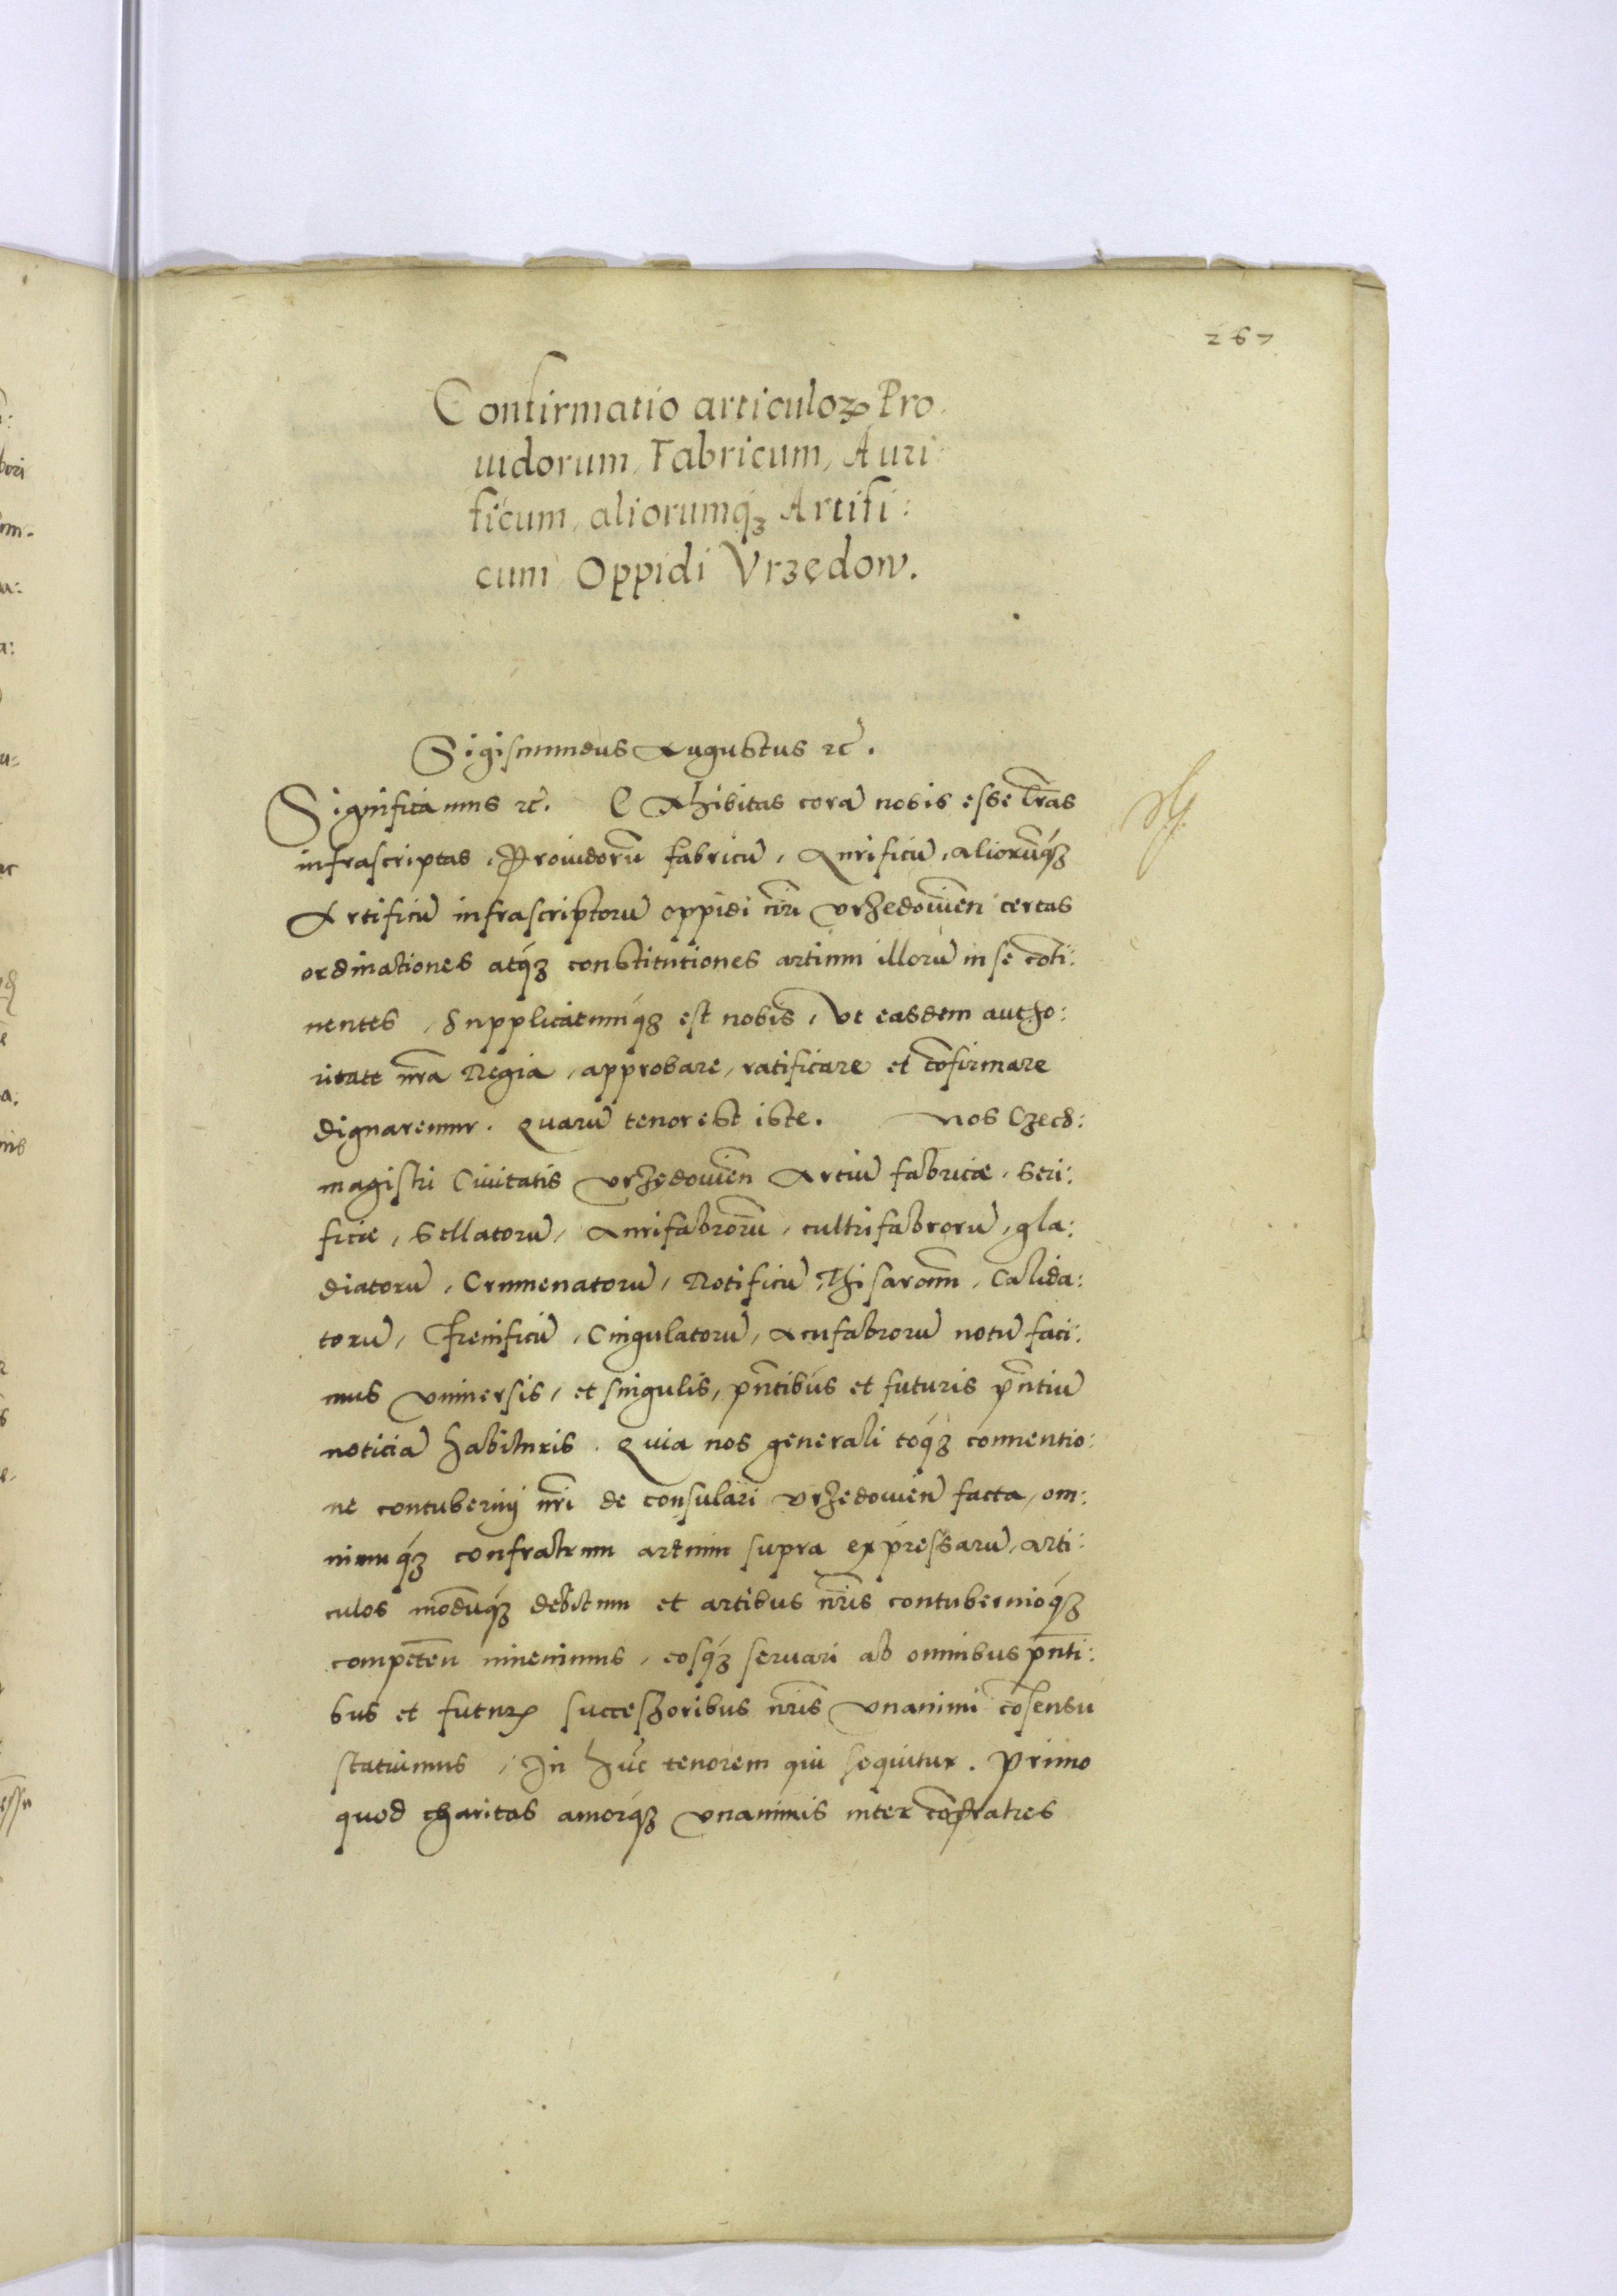 267
Confirmatio articuloꝝ Pro
uidorum, Fabricum, Auri
ficum, aliorumqꝫ Artifi:
cum Oppidi Vrzędow.
Sigismundus Augustus ꝛc̃.
Significamus ꝛc̃. Exhibitas corã nobis esse l̃ras
infrascriptas, Prouidorũ fabricũ, Aurificũ, aliorũqꝫ
Artificũ infrascriptorũ oppidi nr̃i Vrzedowieñ certas
ordinationes atqꝫ constitutiones artium illorũ in se cõti:
nentes, Supplicatumqꝫ est nobis, Vt easdem autho:
ritate nr̃a Regia, approbare, ratificare et cõfirmare
dignaremur. Quarũ tenor est iste. Nos Czech:
magistri Ciuitatis Vrzędowieñ Artiũ fabricæ, Seri:
ficiæ, Sellatorũ, Aurifabrorũ, cultrifabrorũ, gla:
diatorũ, Crumenatorũ, Rotificũ, Calida:
torũ, Frenificũ, Cingulatorũ, Acufabrorũ notũ faci:
mus Vniuersis, et singulis, pñtibus et futuris pñtiũ
noticiã habituris. Quia nos generali totaqꝫ conuentio:
ne contubernij nr̃i de consulari Vrzedowieñ facta, om:
niumqꝫ confratrum artium supra expressarũ, arti:
culos modũqꝫ debitum et artibus nr̃is contubernioqꝫ
competeñ inuenimus, eosqꝫ seruari ab omnibus pñti:
bus et futurꝭ successoribus nr̃is Vnanimi cõsensu
statuimus, In hũc tenorem qui sequitur. Primo
quod charitas amorqꝫ Vnanimis inter cõfratres